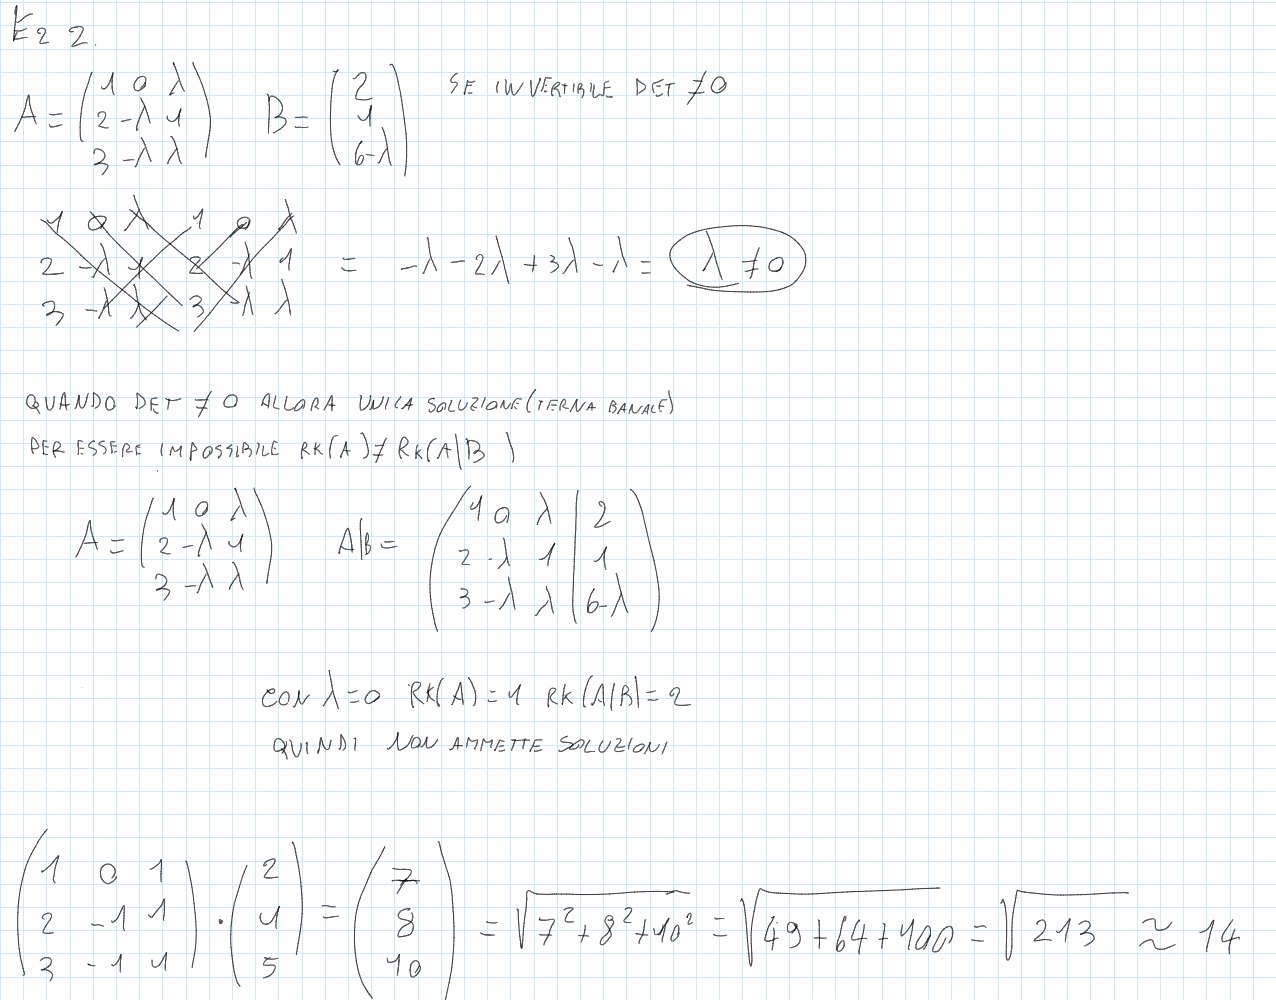 Ez 2.
A = (1 0 λ; 2 -λ 1; 3 -λ λ) B = (2; 1; 6-λ) SE INVERTIBILE DET ≠0
1 0 λ 1 0 λ
2 -λ 1 2 -λ 1 = -λ - 2λ + 3λ - λ = λ ≠0
3 -λ λ 3 -λ λ
QUANDO DET ≠ 0 ALLORA UNICA SOLUZIONE (TERNA BANALE)
PER ESSERE IMPOSSIBILE RK(A) ≠ RK(A|B)
A = (1 0 λ; 2 -λ 1; 3 -λ λ) A|B = (1 0 λ | 2; 2 -λ 1 | 1; 3 -λ λ | 6-λ)
CON λ=0 RK(A) = 1 RK(A|B|=2
QUINDI NON AMMETTE SOLUZIONI
(1 0 1; 2 -1 1; 3 -1 1) · (2; 1; 5) = (7; 8; 10) = √7²+8²+10² = √49+64+100 = √213 ≈ 14